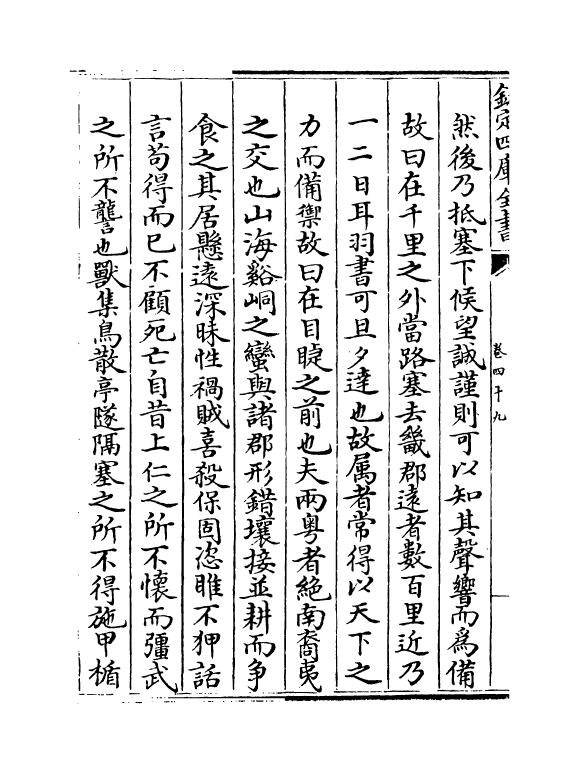 欽定四庫全書
卷四十九
然後乃抵塞下候望誠謹則可以知其聲響而爲備
故曰在千里之外當路塞去畿郡遠者數百里近乃
一二日耳羽書可旦夕達也故属者常得以天下之
力而備禦故曰在目睫之前也夫兩粤者絶南裔夷
之交也山海谿峒之蠻與諸郡形錯壤接並耕而争
食之其居懸遠深昧性禍賊喜殺保固恣睢不狎話
言苟得而已不顧死亡自昔上仁之所不懷而彊武
之所不讋也獸集鳥散亭隧隔塞之所不得施甲楯